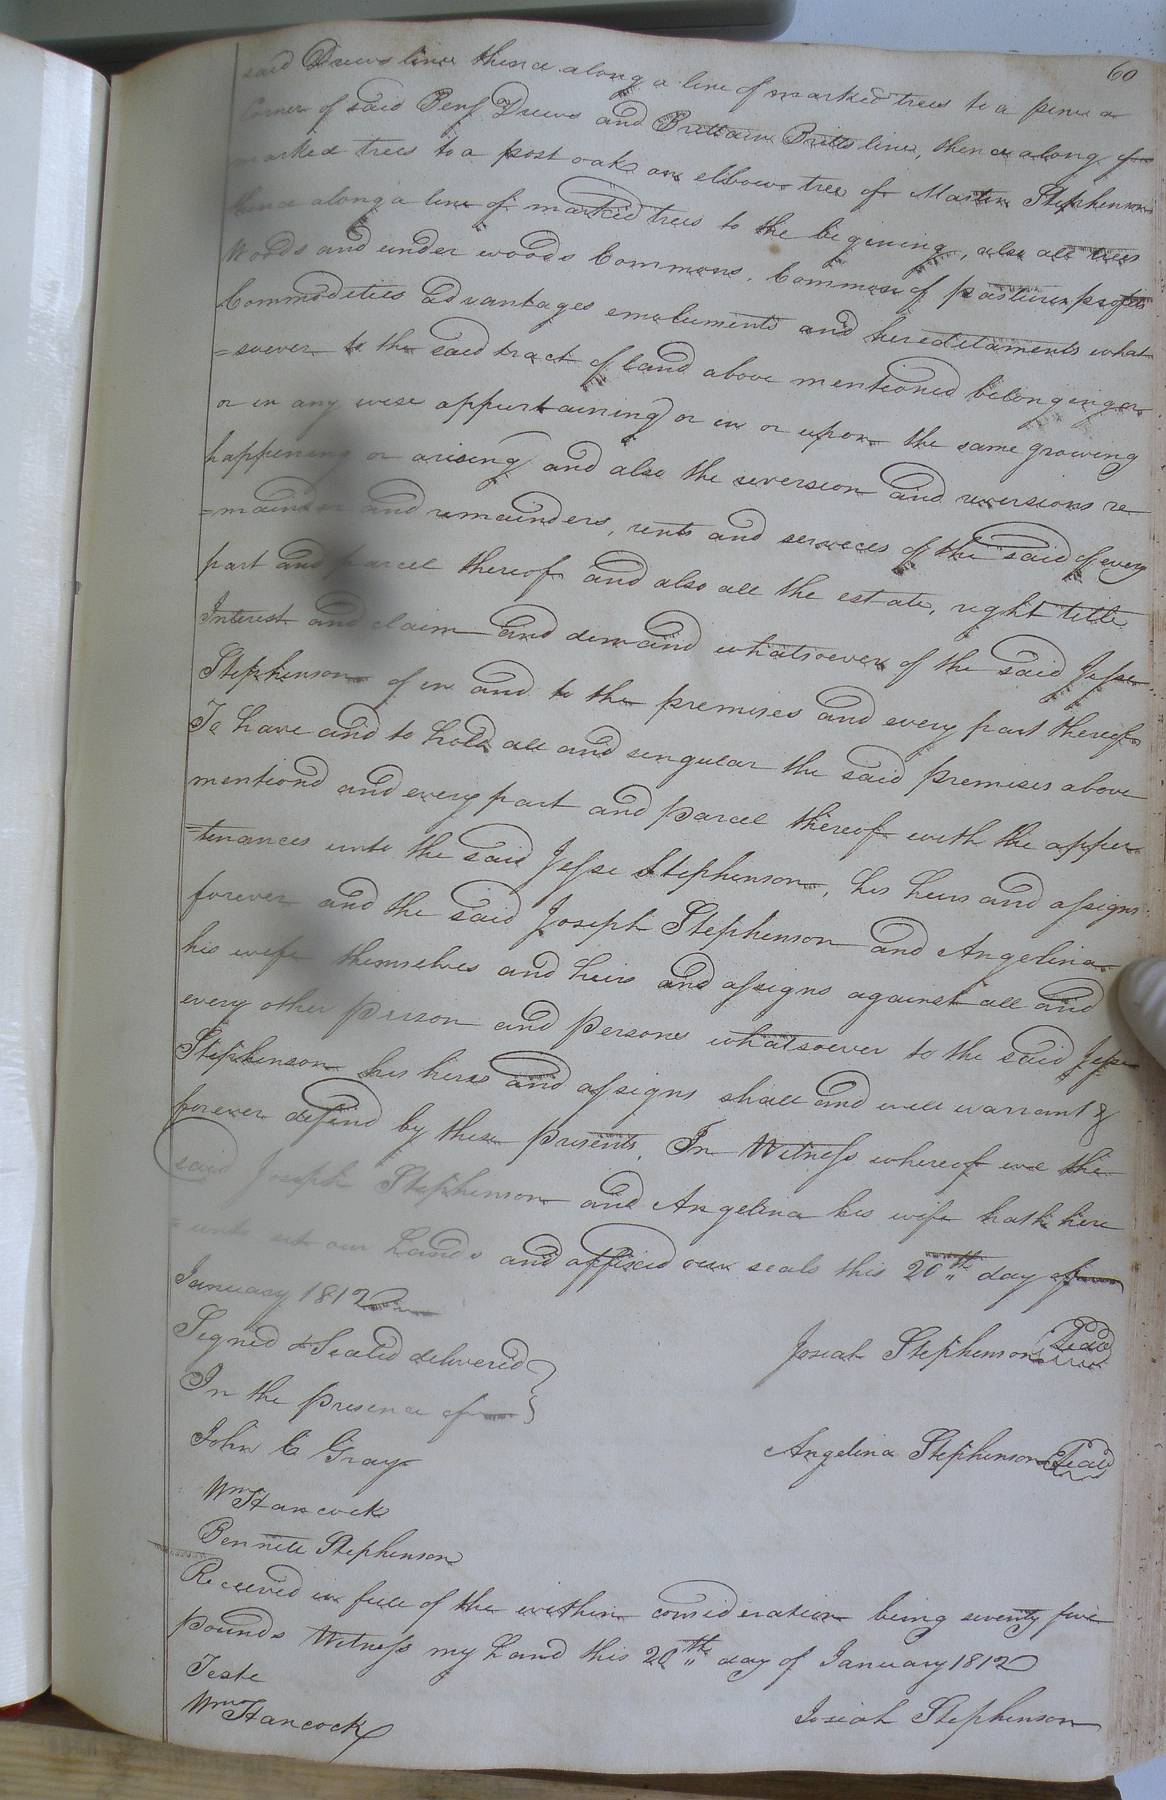 60
said Drews line thence along a line of marked trees to a pine a
Corner of said Benj Drews and Brittain Britts line, thence along
marked trees to a post oak an elbow tree of Martin Stephensons
thence along a line of marked trees to the begining, also all trees
Woods and under woods Commons, Common of pasture profits
Commodeties advantages emoluments and hereditaments what
=soever to the said tract of land above mentioned belonging or
or in any wise appurtaining or in or upon the same growing
happening or arising and also the reversion and reversions re
=mainder and remainders, rents and services of the said of every
part and parcel thereof and also all the estate, right title
Interest and claim and demand whatsoever of the said Jesse
Stephenson of in and to the premises and every part thereof
To have and to hold all and singular the said premises above
mentiond and every part and parcel thereof with the apper
=tenances unto the said Jesse Stephenson, his heirs and assigns
forever and the said Joseph Stephenson and Angelina
his wife themselves and heirs and assigns against all and
every other person and persons whatsoever to the said Jesse
Stephenson his hirs and assigns shall and will warrant &
forever defend by these presents. In Witness whereof we the
said Joseph Stephenson and Angelina his wife hath here
=unto set our hands and affixed our seals this 20th day of
January 1812
Signed & Sealed delivered
In the presence of
Josiah Stephenson Seal
John C Gray
Angelina Stephenson Seal
Wm Hancock
Bennett Stephenson
Received in full of the within consideration being seventy five
pounds Witness my hand this 20th day of January 1812
Teste
Wm Hancock
Josiah Stephenson